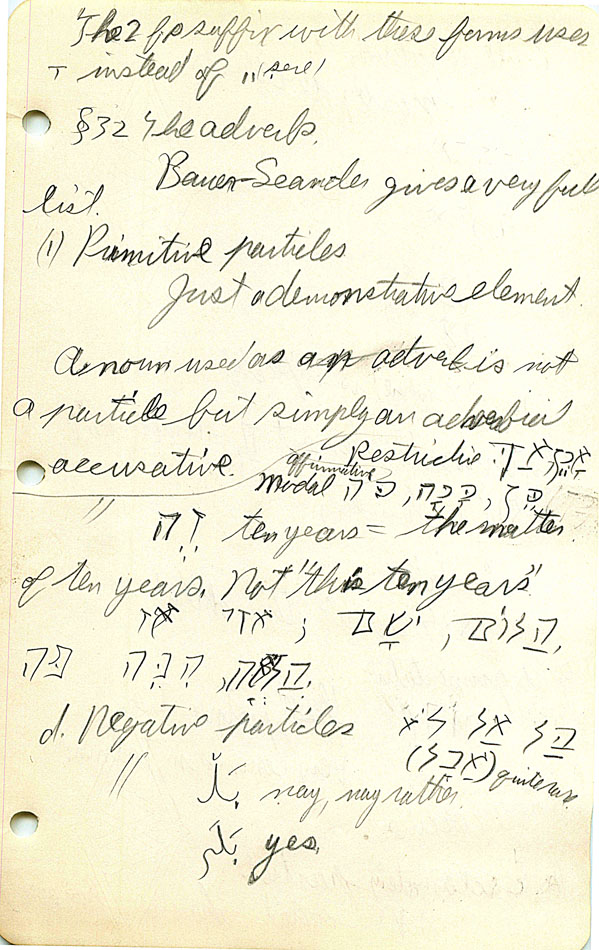 The 2 fp suffix with these forms uses
ָ instead of ֵ (sere)
§32 The adverb.
Bauer-Leander gives a very full
list.
(1) Primitive particles
Just a demonstrative element.
A noun used as an adverb is not
a particle but simply an adverbial
accusative. Restrictive: אַךְ, אָכֵן
affirmitive
modal כֹּה, כָּכָה, כֵּן
" זֶה ten years = the matter
of ten years. Not "this ten years"
אָז אזי ; שָׁם, הֲלוֹם,
פֹּה הִנֵּה
d. Negative particles לא אַל בַּל
(אֲבָל) quite rare
" بَلْ nay, nay rather.
بَلَى yes,